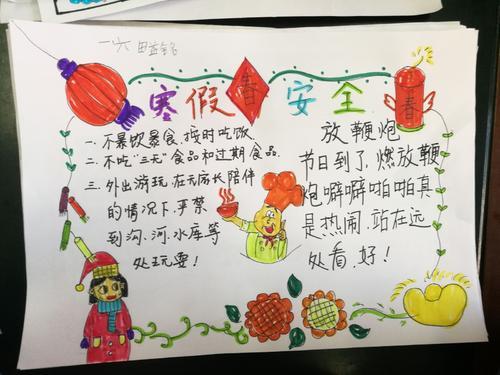 一六
寒假春安全
春
一、不暴饮暴食、按时吃饭.
二、不吃“三无”食品和过期食品.
三、外出游玩在无家长陪伴
的情况下.严禁
到沟、河、水库等
处玩耍！
放鞭炮
节日到了，燃放鞭
炮噼噼啪啪真
是热闹.站在远
处看，好！